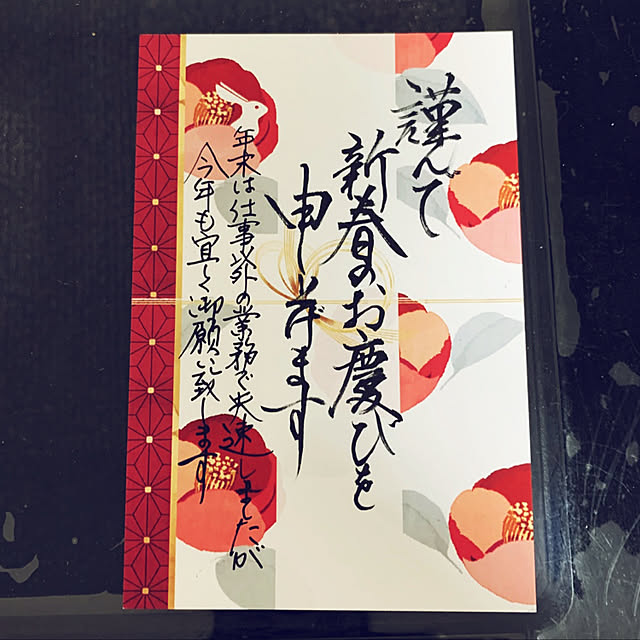 謹んで
新春のお慶びを
申し上げます
年末は仕事以外の業務で失速しましたが
今年も宜しく御願い致します